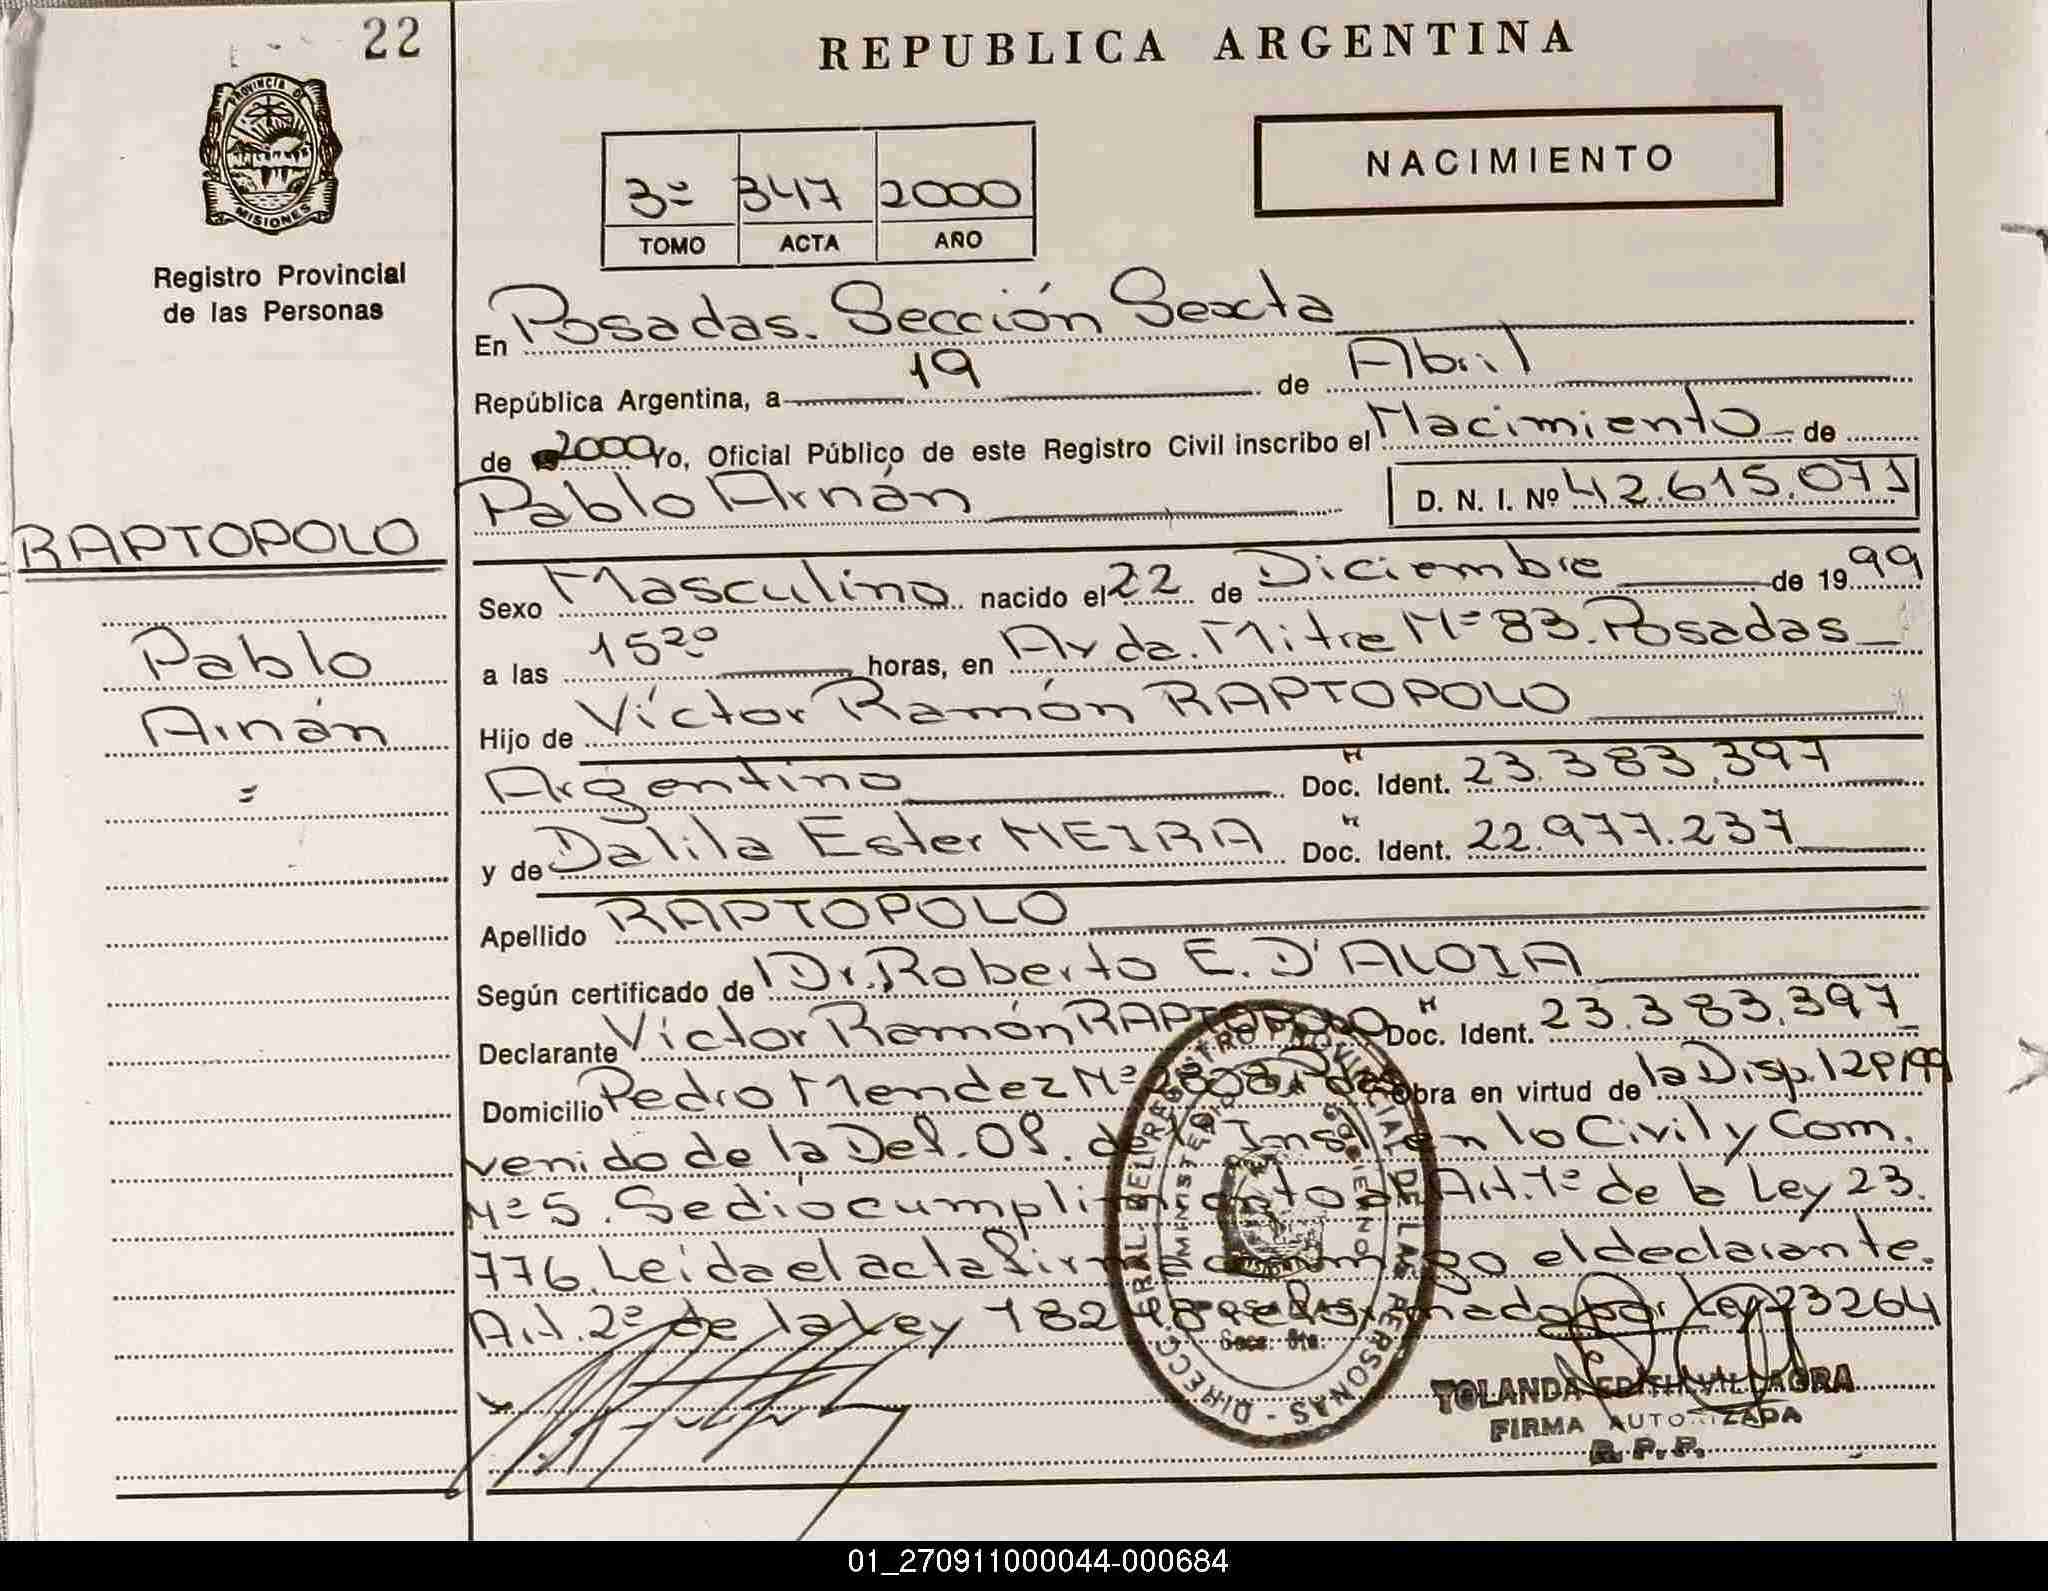 22
REPUBLICA ARGENTINA
PROVINCIA DE
MISIONES
Registro Provincial
de las Personas
NACIMIENTO
3º 347 2000
TOMO ACTA AÑO
En Posadas. Sección Sexta
República Argentina, a 19 de Abril
de 2000 Yo, Oficial Público de este Registro Civil inscribo el Nacimiento de
Pablo Arnán D. N. I. Nº 42.615.071
RAPTOPOLO
Pablo
Arnán
=
Sexo Masculino nacido el 22 de Diciembre de 1999
a las 15²⁰ horas, en Avda. Mitre Nº 83. Posadas
Hijo de Víctor Ramón RAPTOPOLO
Argentino Doc. Ident. 23.383.397
y de Dalila Ester NEIRA Doc. Ident. 22.977.237
Apellido RAPTOPOLO
Según certificado de Dr. Roberto E. D'ALOIA
Declarante Víctor Ramón RAPTOPOLO Doc. Ident. 23.383.397
Domicilio Pedro Mendez Nº Obra en virtud de la Disp. 129/99
venido de la Def. Of. de 1ª Inst. en lo Civil y Com.
Nº 5. Se dió cumplimiento al Art. 1º de la Ley 23.
776. Leída el acta firma conmigo el declarante.
Art. 2º de la Ley 18248 reformado por Ley 23264
DIRECC GRAL. DEL REGISTRO PROVINCIAL DE LAS PERSONAS -
MINISTERIO GOBIERNO
POSADAS
Secc. 6ta.
YOLANDA EDITH VILLAGRA
FIRMA AUTORIZADA
R. P. P.
01_270911000044-000684